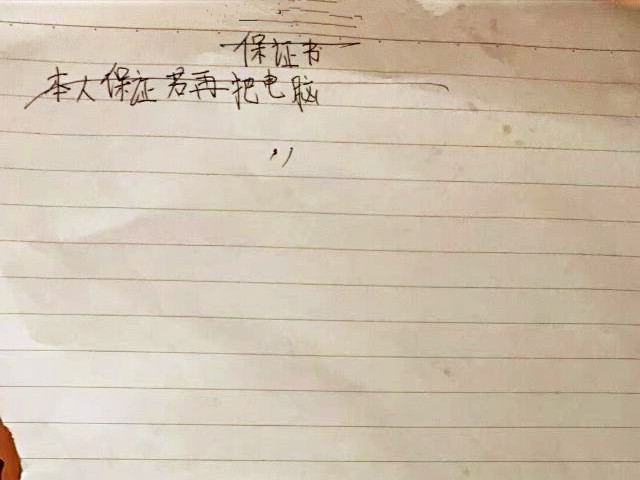 保证书
本人保证若再把电脑